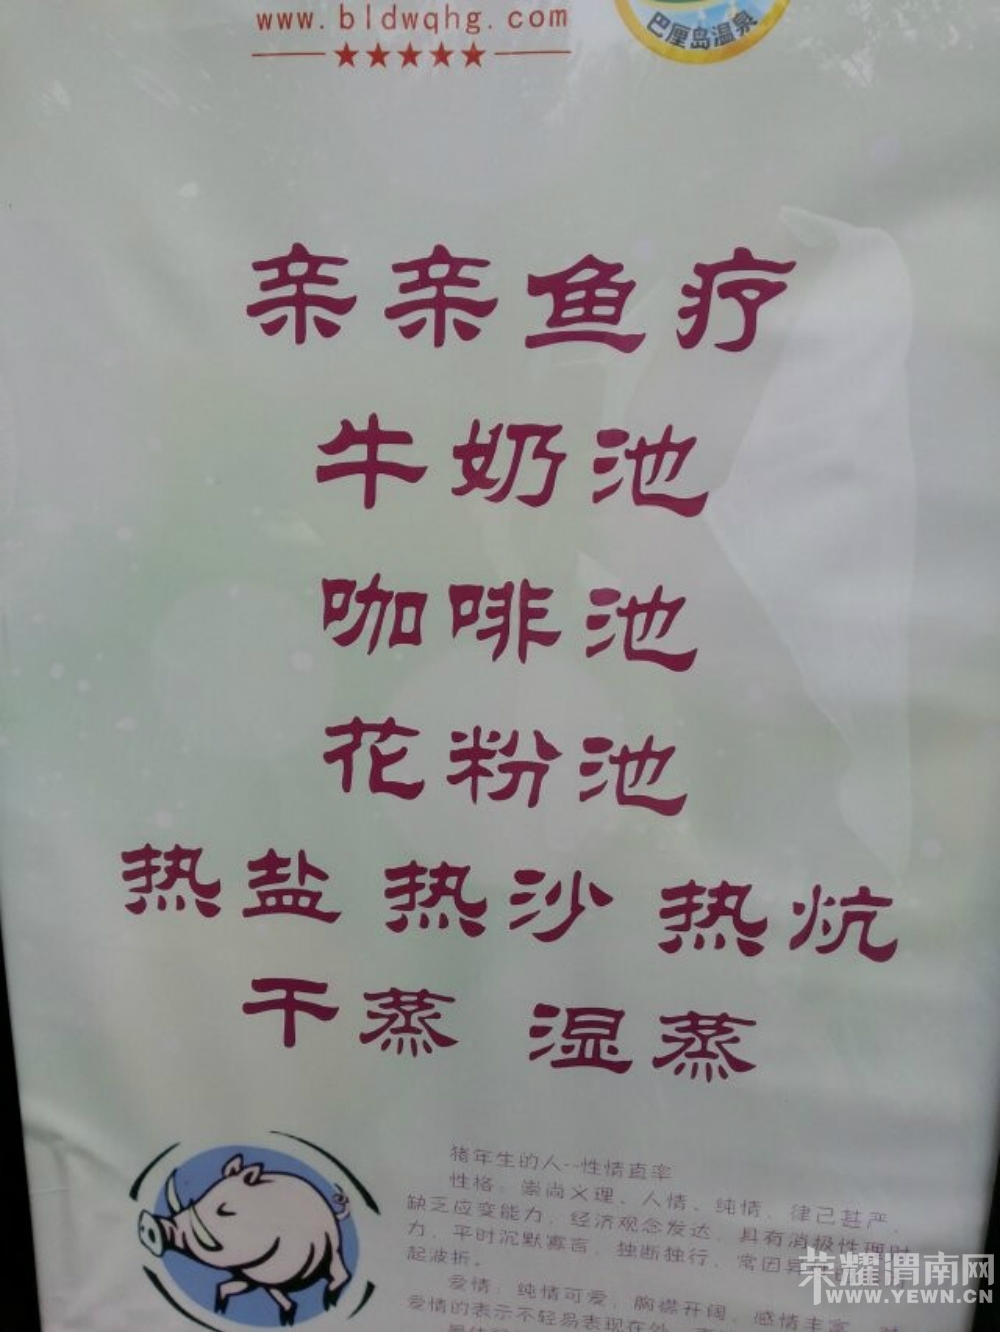 www.bldwqhg.com
巴厘岛温泉
亲亲鱼疗
牛奶池
咖啡池
花粉池
热盐 热沙 热炕
干蒸 湿蒸
猪年生的人--性情直率
性格：崇尚义理、人情、纯情，律己甚严，
缺乏应变能力，经济观念发达，具有消极性理财
力，平时沉默寡言，独断独行，常因
起波折。
爱情：纯情可爱，胸襟开阔，感情丰富，
爱情的表示不轻易表现在外，
荣耀渭南网
WWW.YEWN.CN